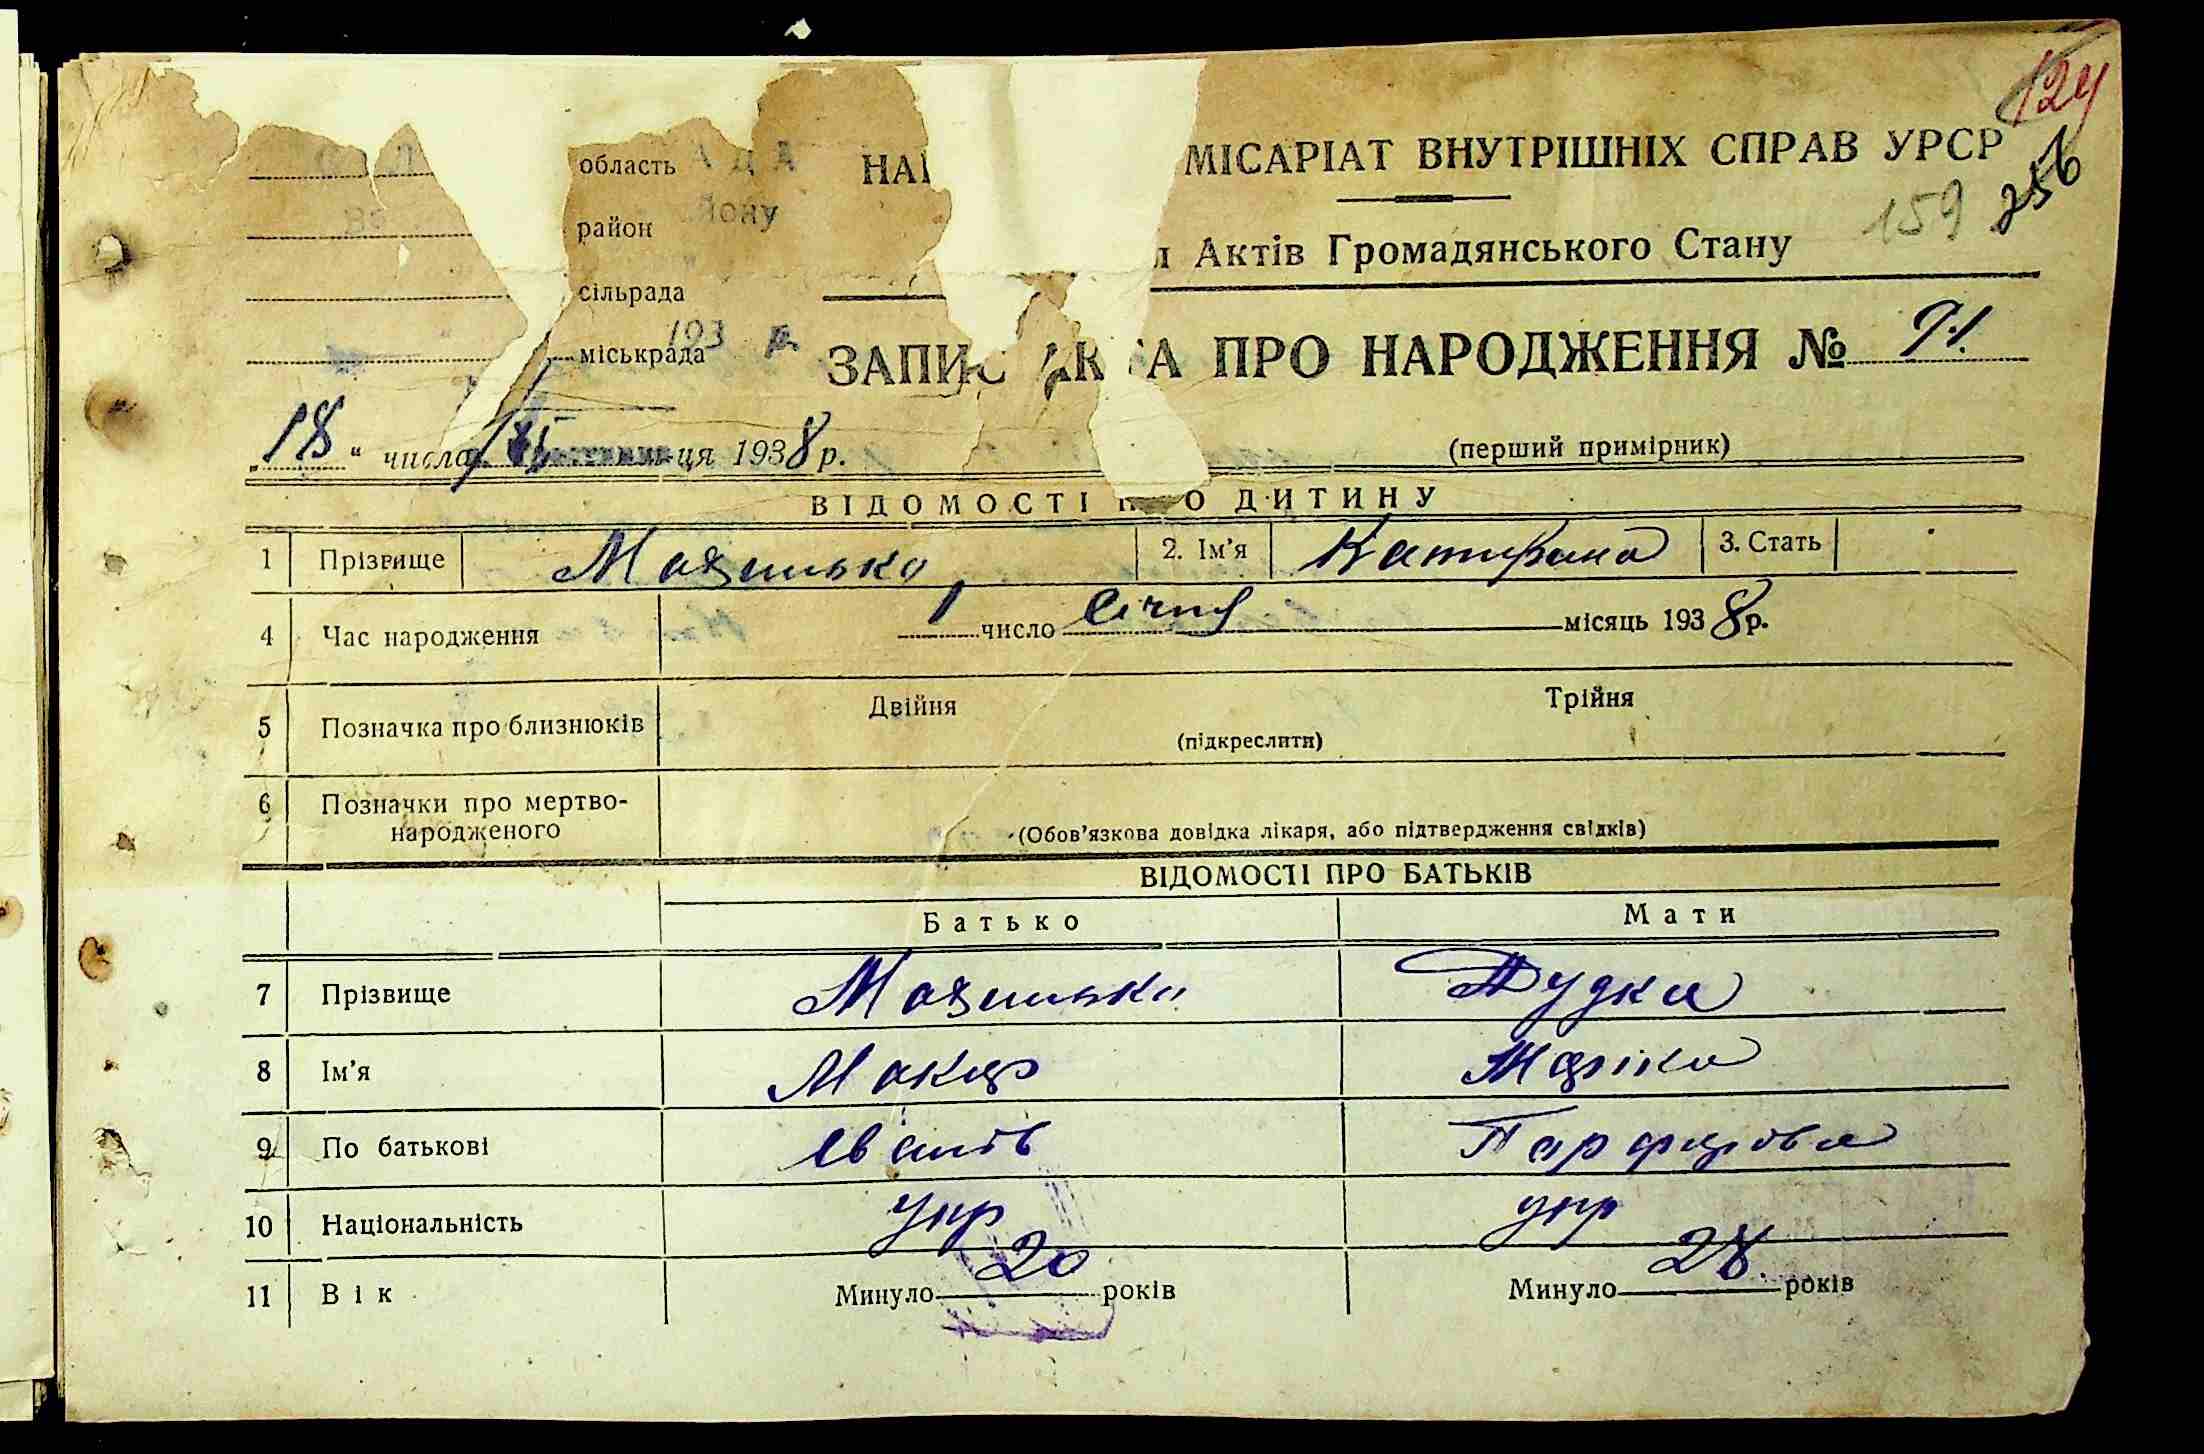 124
область НА МІСАРІАТ ВНУТРІШНІХ СПРАВ УРСР
159 256
район йону
Актів Громадянського Стану
сільрада
міськрада 193 р.
ЗАПИС АКТА ПРО НАРОДЖЕННЯ №
„18“ числа ця 1938 р.
(перший примірник)
ВІДОМОСТІ ПРО ДИТИНУ
1 Прізвище 2. Ім'я Катирина 3. Стать
4 Час народження 1 число Січня місяць 1938 р.
5 Позначка про близнюків Двійня Трійня
(підкреслити)
6 Позначки про мертво-
народженого (Обов'язкова довідка лікаря, або підтвердження свідків)
ВІДОМОСТІ ПРО БАТЬКІВ
Батько Мати
7 Прізвище Дудка
8 Ім'я Макар Маріка
9 По батькові
10 Національність укр укр
11 Вік Минуло 20 років Минуло 28. років